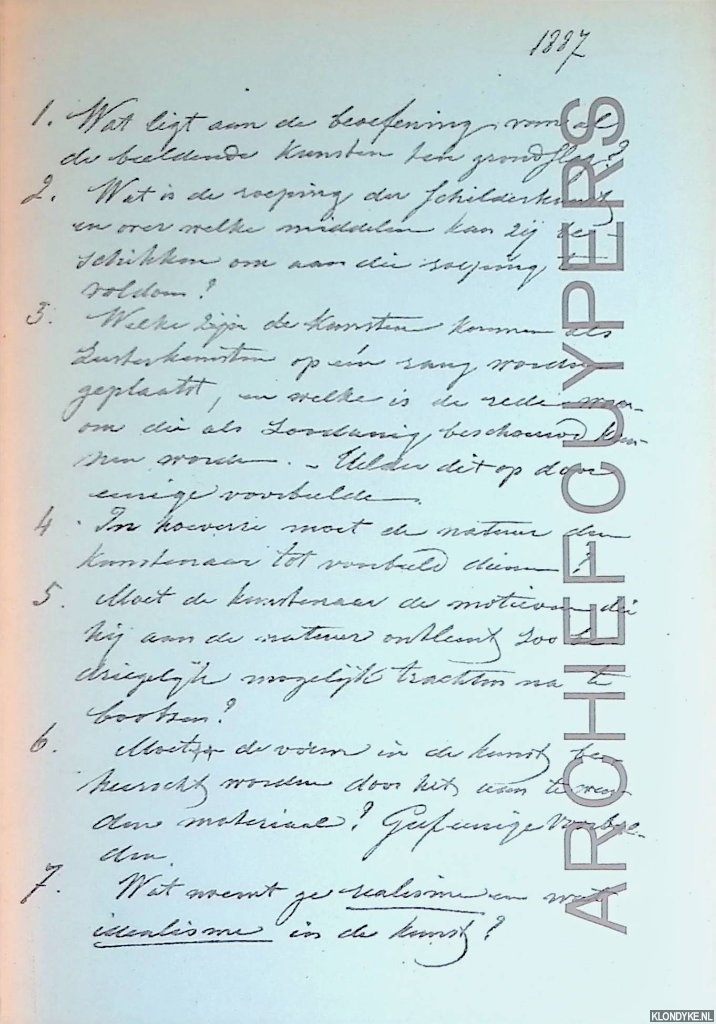 1887
1. Wat ligt aan de beoefening van al
de beeldende kunsten ten grondslag?
2. Wat is de roeping der schilderkunst
en over welke middelen kan zij be-
schikken om aan die roeping te
voldoen?
3. Welke zijn de kunsten kunnen als
zusterkunsten op één rang worden
geplaatst, en welke is de rede waar-
om die als zoodanig beschouwd kun-
nen worden. – Helder dit op door
eenige voorbeelden.
4. In hoeverre moet de natuur den
kunstenaar tot voorbeeld dienen?
5. Moet de kunstenaar de motieven die
hij aan de natuur ontleent zoo be-
driegelijk mogelijk trachten na te
bootsen?
6. Moet de vorm in de kunst be-
heerscht worden door het aan te wen-
den materiaal? Geef eenige voorbeel-
den.
7. Wat noemt ge realisme en wat
idealisme in de kunst?
ARCHIEF CUYPERS
KLONDYKE.NL